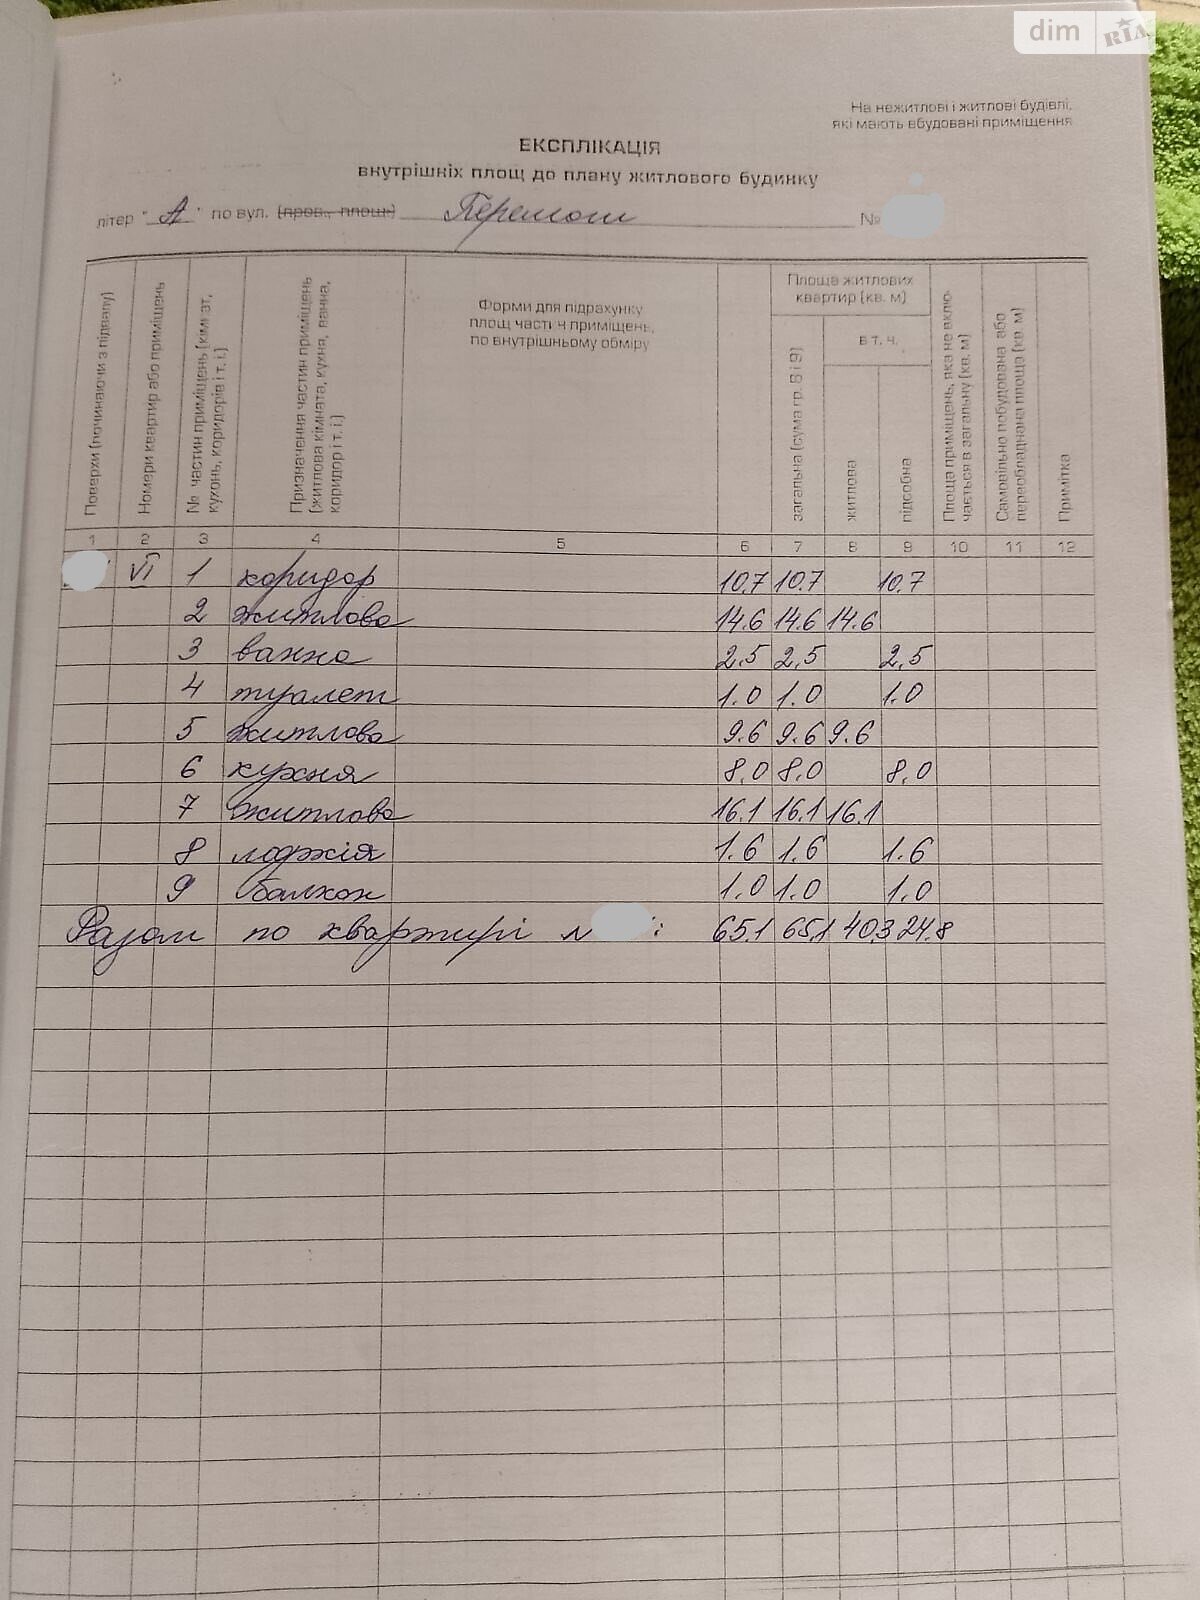 dim RIA
На нежитлові і житлові будівлі,
які мають вбудовані приміщення
ЕКСПЛІКАЦІЯ
внутрішніх площ до плану житлового будинку
літер "А" по вул. (пров., площ.) Перемоги №
Поверхи (починаючи з підвалу)
Номери квартир або приміщень
№ частин приміщень (кімнат,
кухонь, коридорів і т. і.)
Призначення частин приміщень
(житлова кімната, кухня, ванна,
коридор і т. і.)
Форми для підрахунку
площ частин приміщень,
по внутрішньому обміру
Площа житлових
квартир (кв. м)
загальна (сума гр. 8 і 9)
в т. ч.
житлова
підсобна
Площа приміщень, яка не вклю-
чається в загальну (кв. м)
Самовільно побудована або
переобладнана площа (кв. м)
Примітка
1 2 3 4 5 6 7 8 9 10 11 12
VI 1 коридор 10,7 10.7 10.7
2 житлова 14.6 14.6 14.6
3 ванна 2,5 2,5 2,5
4 туалет 1.0 1.0 1.0
5 житлова 9.6 9.6 9.6
6 кухня 8,0 8,0 8,0
7 житлова 16.1 16.1 16.1
8 лоджія 1.6 1.6 1.6
9 балкон 1.0 1.0 1.0
Разом по квартирі № : 65.1 65,1 40,3 24.8